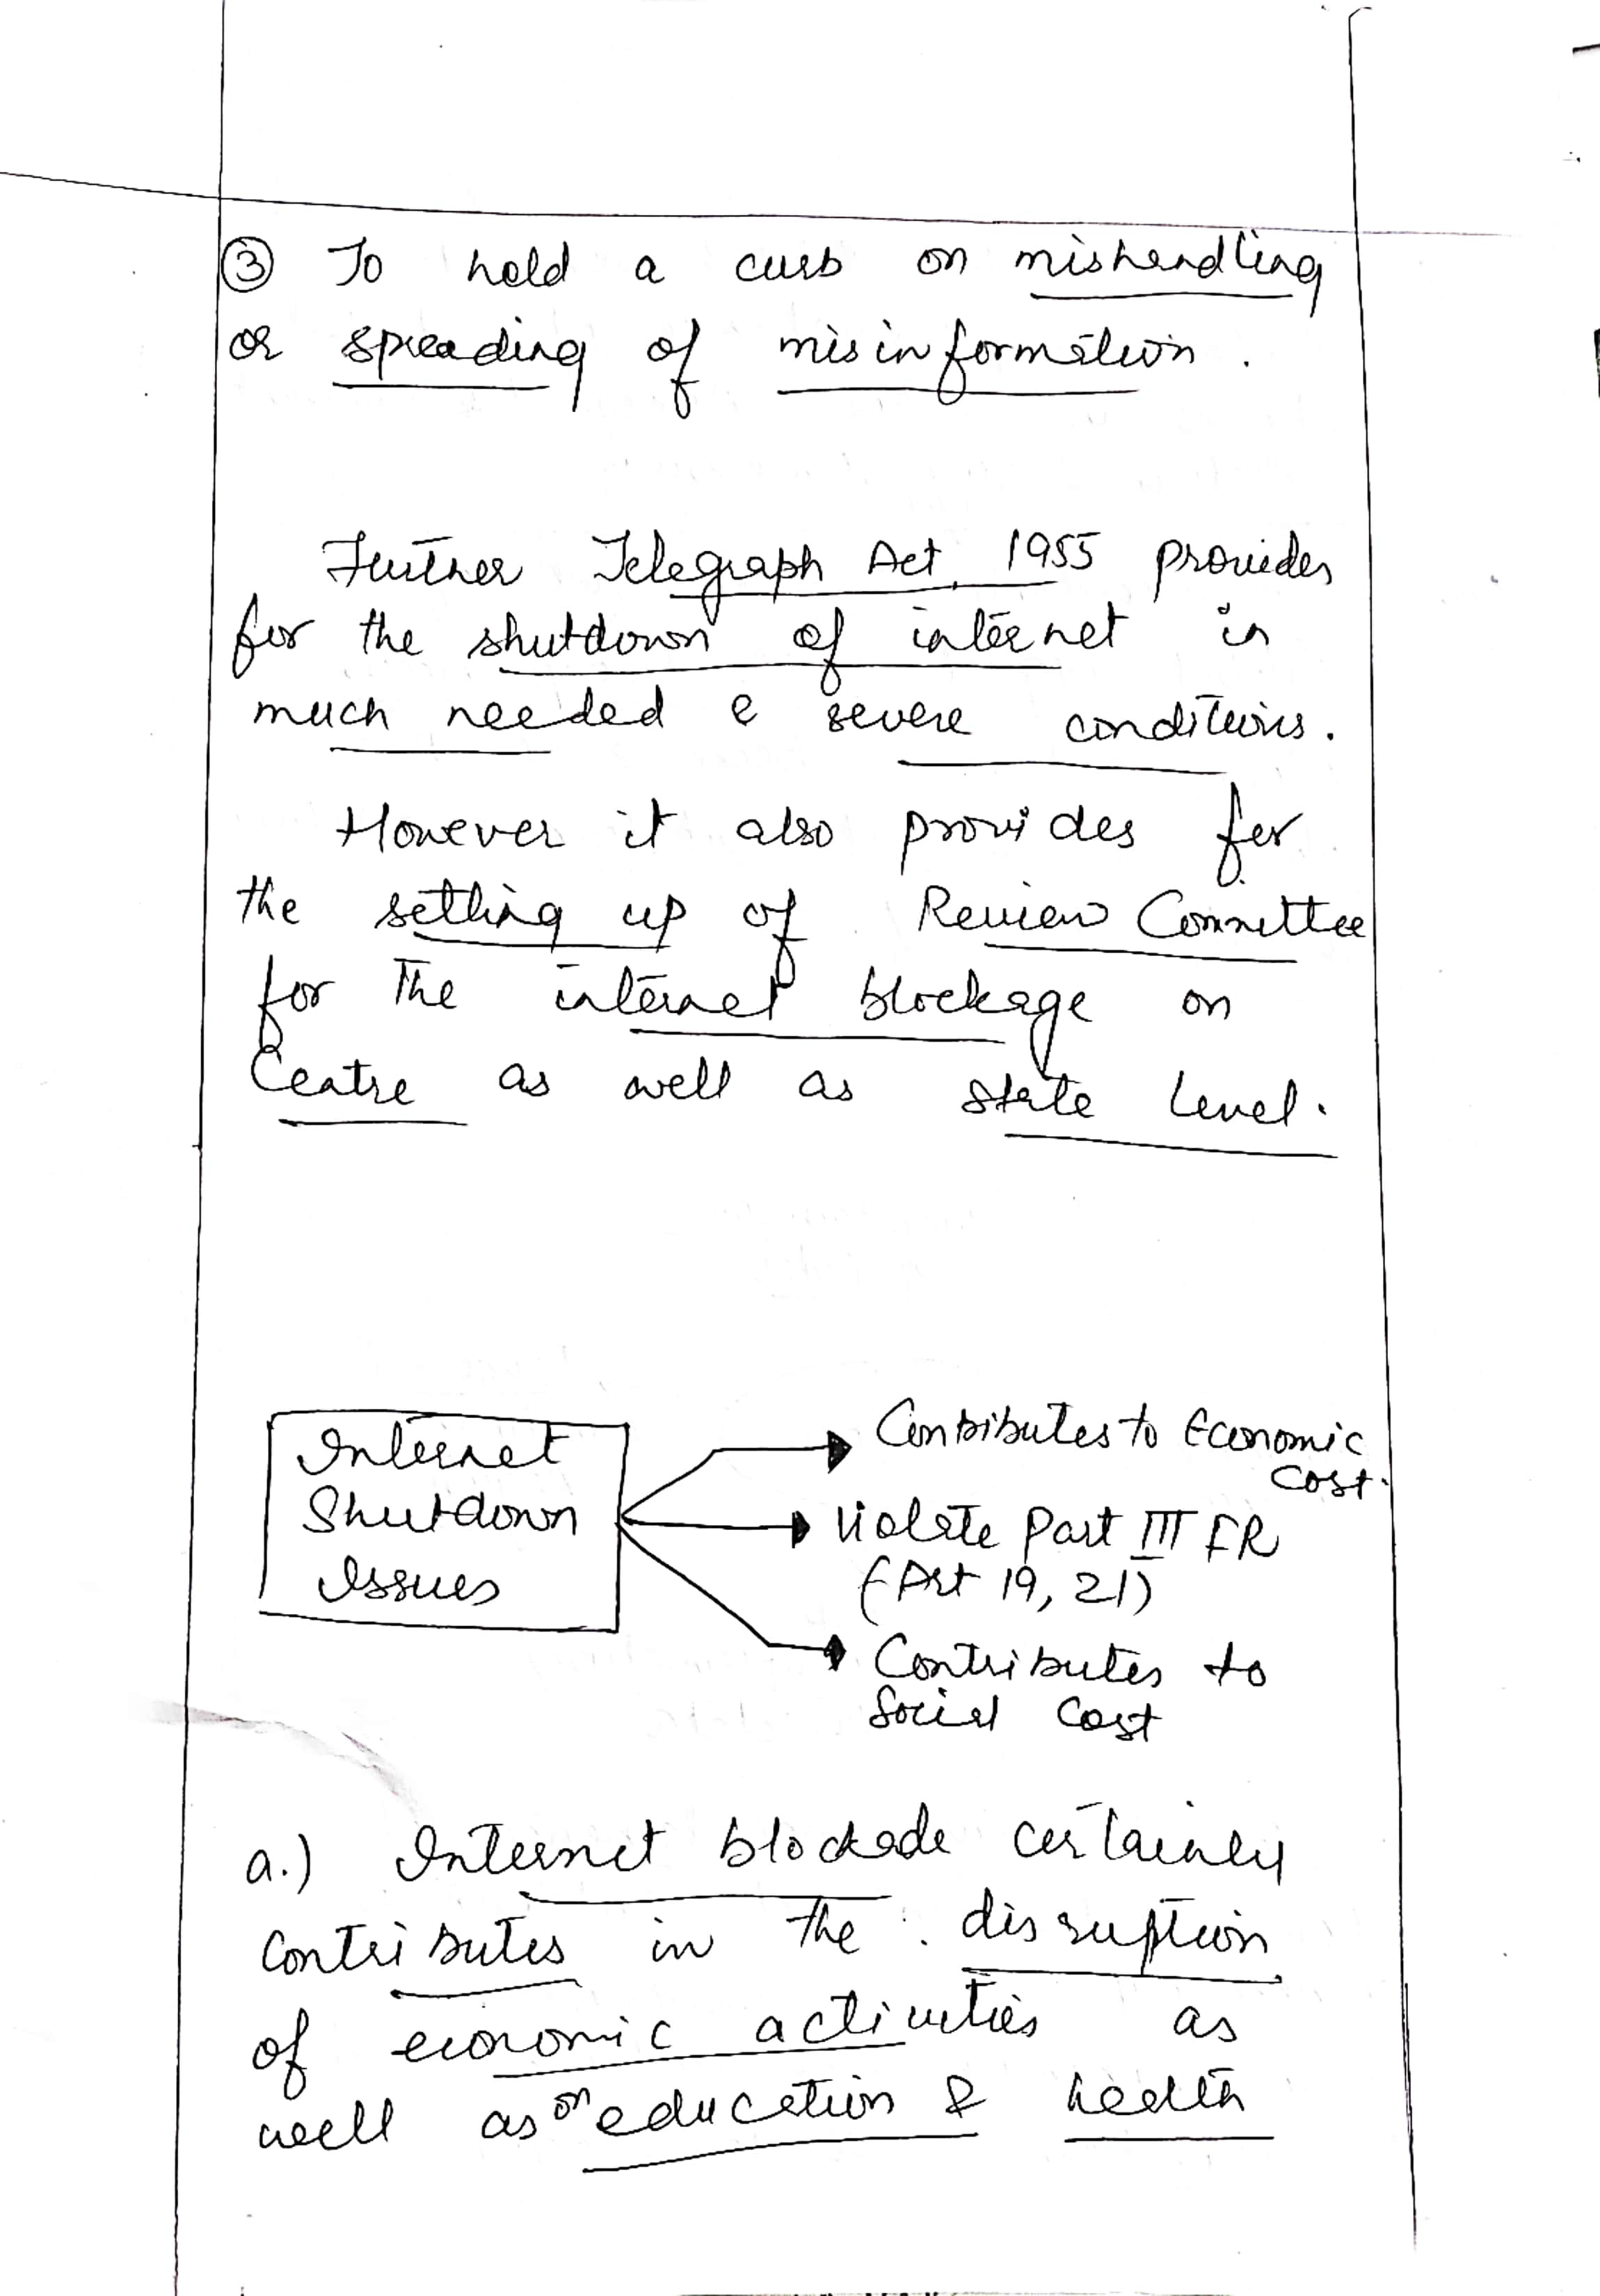 ③ To hold a curb on mishandling
or spreading of misinformation.
Further Telegraph Act, 1955 provides
for the shutdown of internet in
much needed & severe conditions.
However it also provides for
the setting up of Review Committee
for the internet blockage on
Centre as well as state level.
Internet
Shutdown
Issues
Contributes to Economic
Cost.
Violate Part III FR
(Art 19, 21)
Contributes to
Social Cost
a.) Internet blockade certainly
contributes in the disruption
of economic activities as
well as on education & health